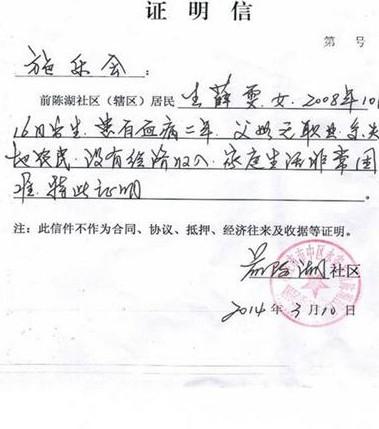 证明信
第 号
施乐会：
前陈湖社区（辖区）居民 王薛雯，女，2008年10月
16日出生，患有血病二年，父母无职业，系失
地农民，没有经济收入，家庭生活非常困
难，特此证明。
注：此信件不作为合同、协议、抵押、经济往来及收据等证明。
前陈湖社区
2014年3月10日